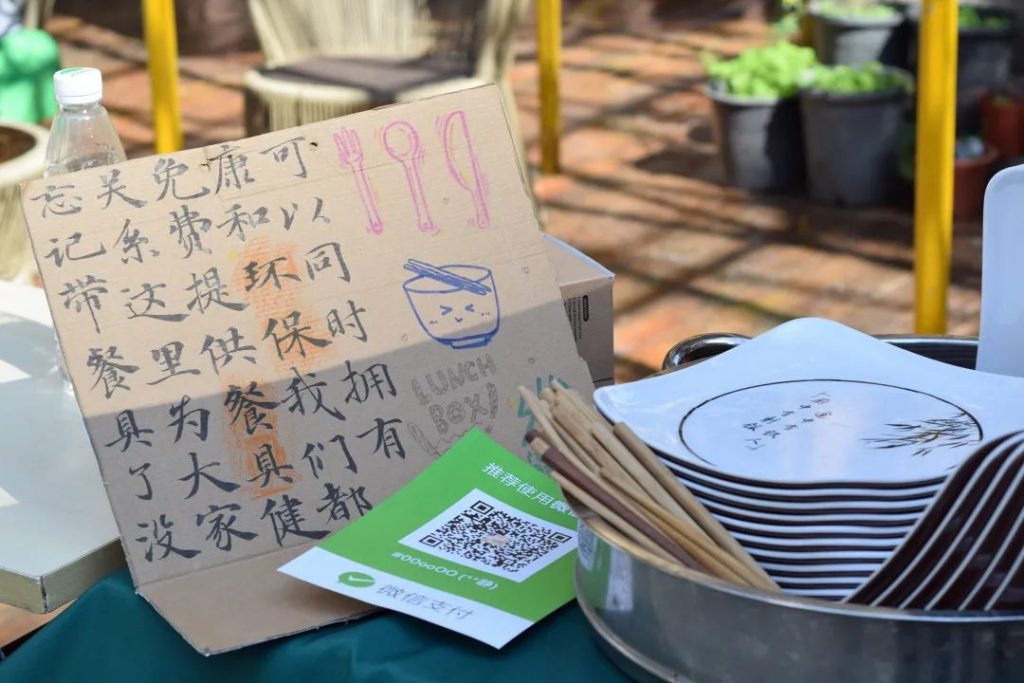 忘记带餐具了没
关系这里为大家
免费提供餐具健
康和环保我们都
可以同时拥有
LUNCH
BOX!
推荐使用微
#OOooOO(**静)
微信支付